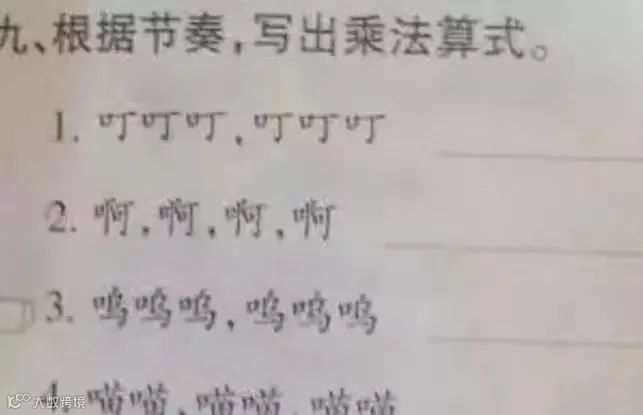 九、根据节奏,写出乘法算式。
1. 叮叮叮,叮叮叮
2. 啊,啊,啊,啊
3. 呜呜呜,呜呜呜
4. 喵喵,喵喵,喵喵
大数跨境